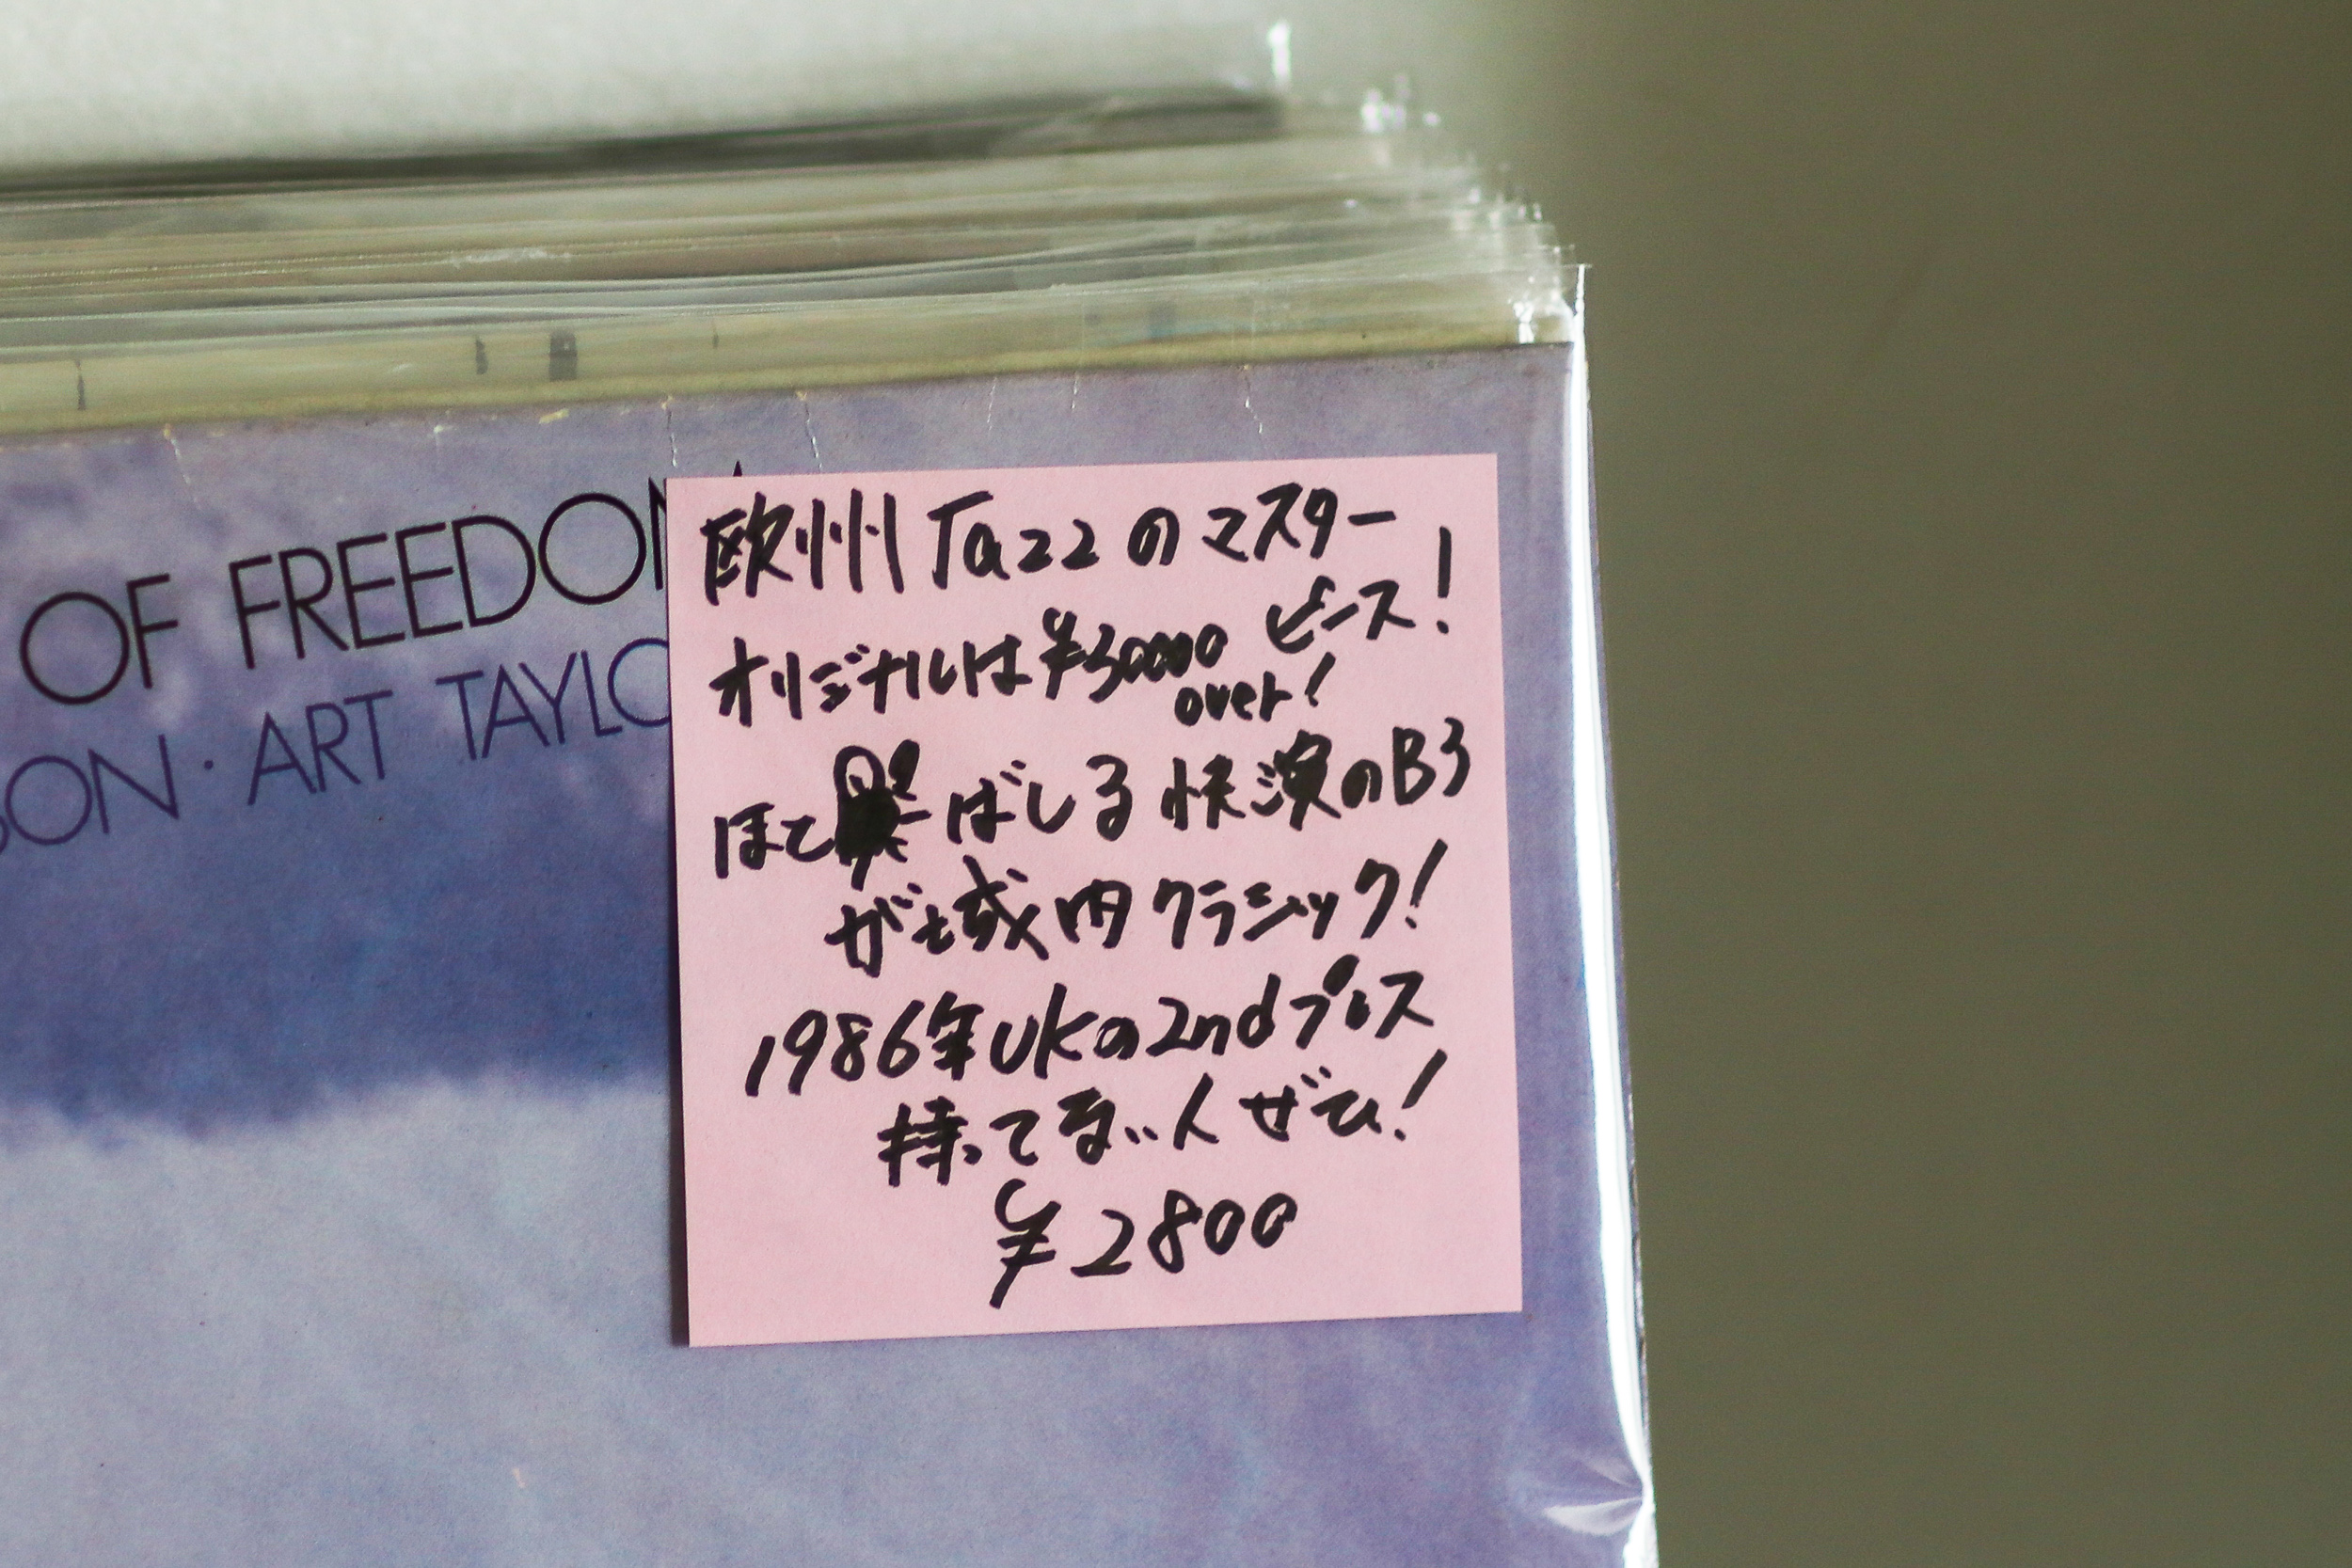 OF FREEDOM
SON · ART TAYLO
欧州Jazzのマスター
ピース!
オリジナルは¥30000
over!
ほとばしる快演のB3
が域内クラシック!
1986年UKの2ndプレス
持ってない人ぜひ!
¥2800